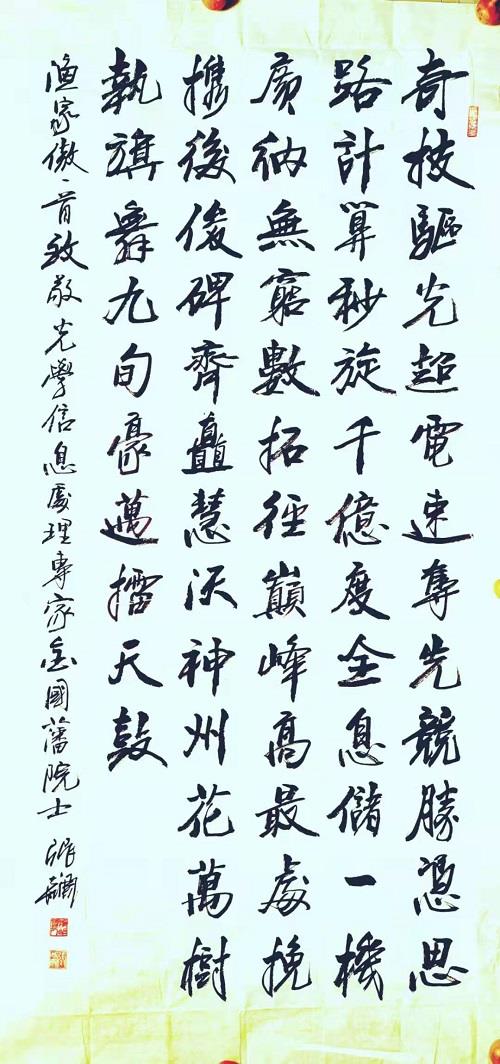 奇技驅光超電速奪先競勝憑思
路計算秒旋千億度全息儲一機
廣納無窮數拓徑巔峰高最處挽
攜後俊碑齊矗慧沃神州花萬樹
執旗舞九旬豪邁擂天鼓
漁家傲一首致敬光學信息處理專家金國藩院士